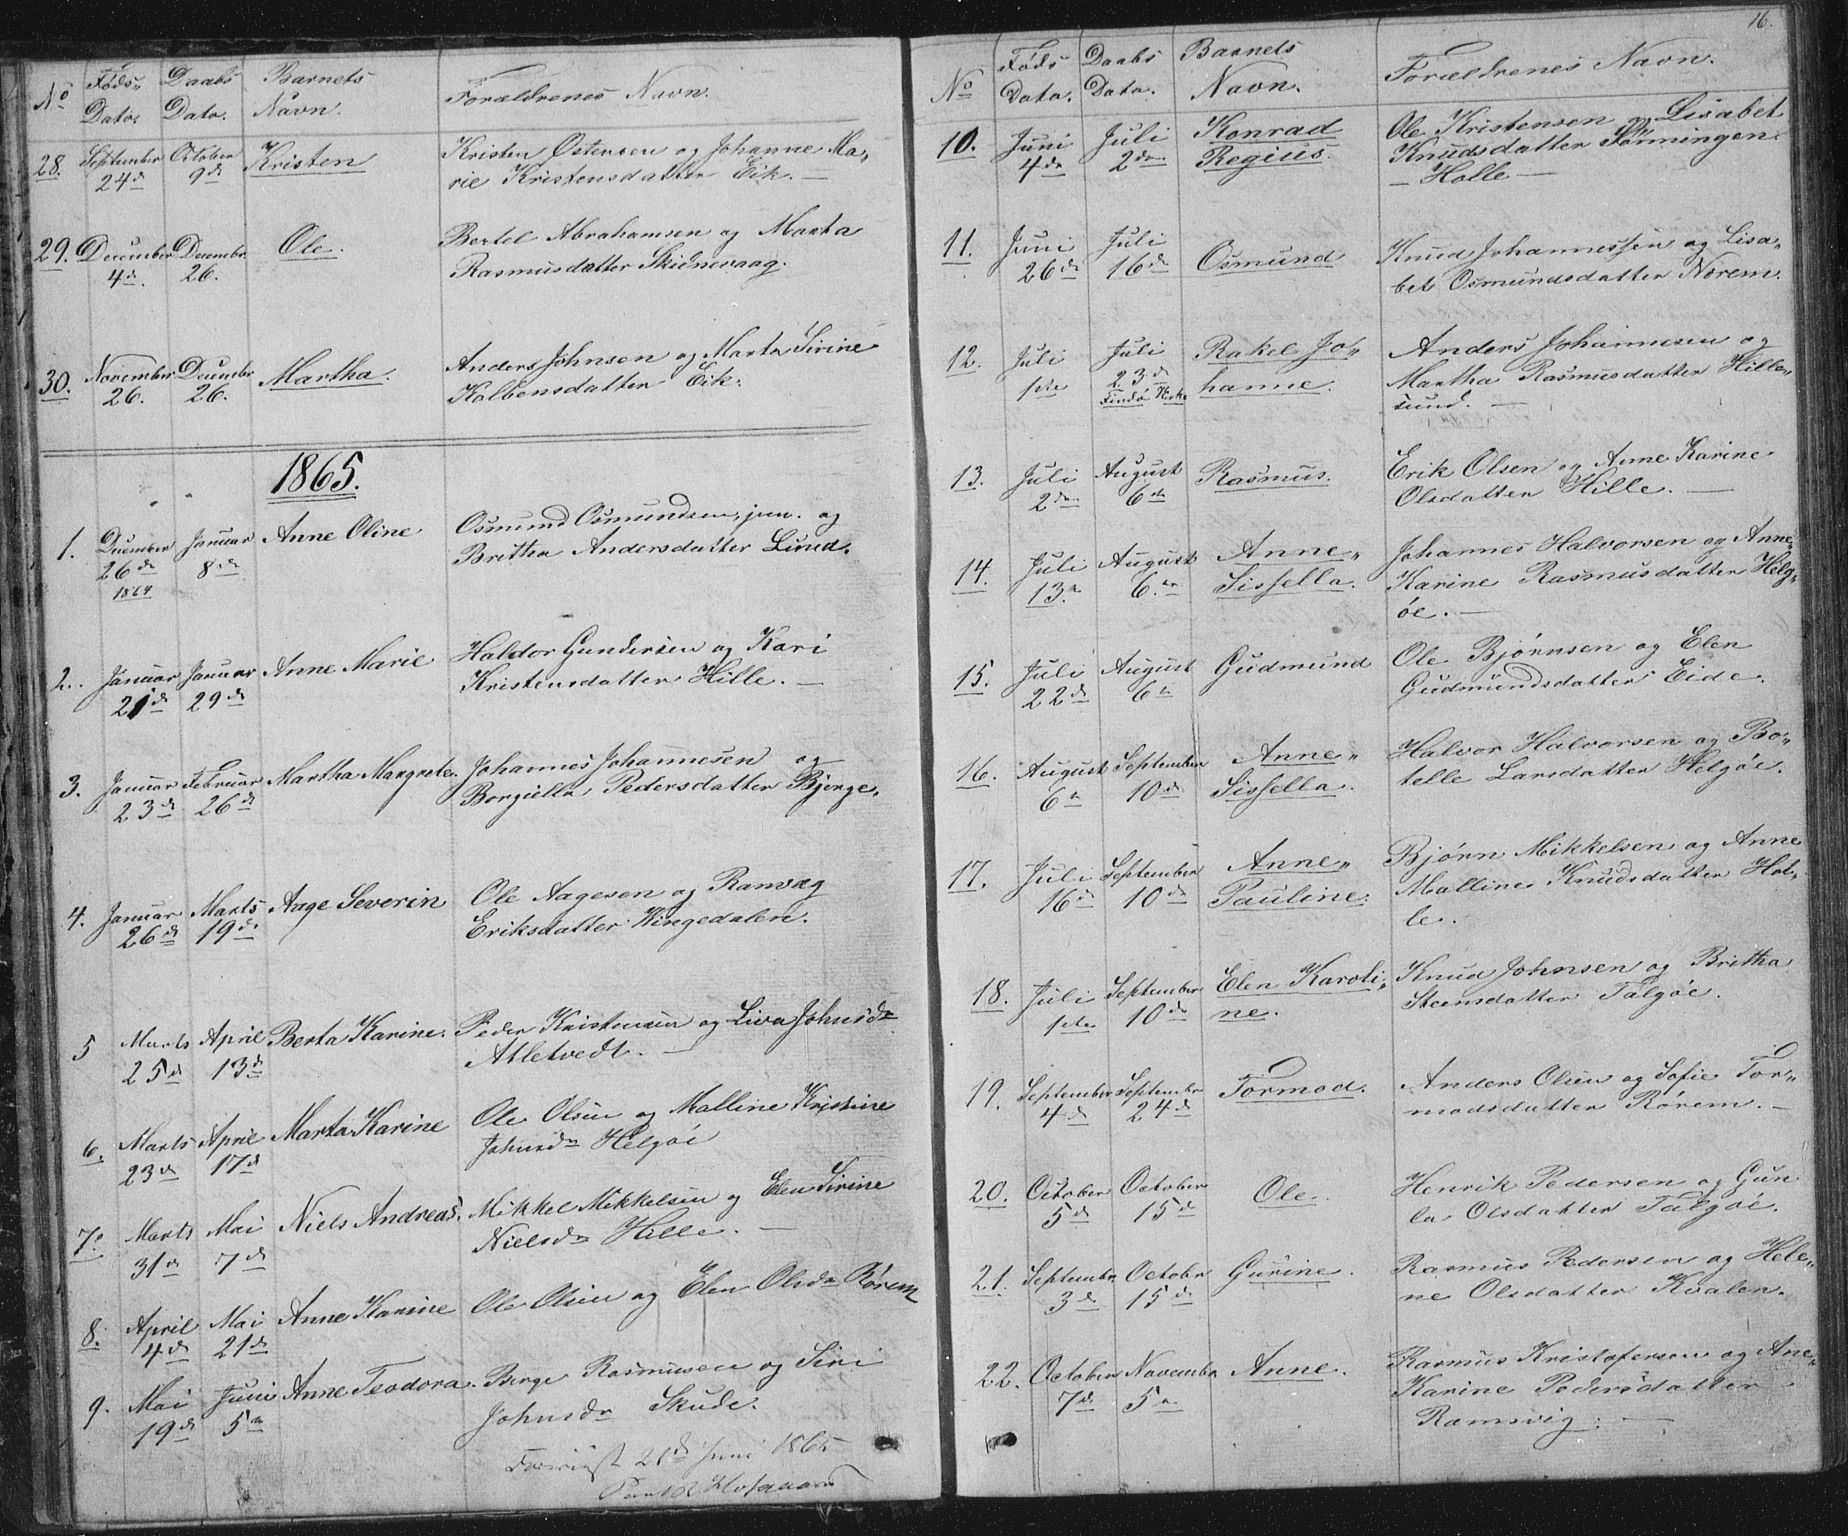 No Føds- Daabs Barnets Forældrenes Navn.
Dato. Dato. Navn.
28. September October Kristen Kristen Ostensen og Johanne Ma-
24de 9de rie Kristensdatter Eik. —
29. December Decembr. Ole. Bertel Abrahamsen og Marta
4de. 26. Rasmusdatter Skidnevaag.
30. November Decembr Martha. Anders Johnsen og Marta Sirine
26. 26. Kolbensdatter Eik.
1865.
1. December Januar Anne Oline Osmund Osmundsen, jun. og
26de 8de Britha Andersdatter Lund.
1864
2. Januar Januar Anne Marie Haldor Gundersen og Kari
21de 29de Kristensdatter Hille. —
3. Januar Februar Martha Margrete. Johannes Johannesen og
23de 26de Borgiella Pedersdatter Bjerge.
4. Januar Marts Aage Severin Ole Aagesen og Ranvæg
26de 19de. Eriksdatter Vingedalen.
5 Marts April Berta Karine. Peder Kristensen og Liva Johnsdr
25de 13de Atletvedt. —
6. Marts April Marta Karine Ole Olsen og Malline Kristine
23de 17de Johnsdr Helgøi
7. Marts Mai Niels Andreas. Mikkel Mikkelsen og Elen Sirine
31de 7de Nielsdr Hille. —
8. April Mai Anne Karine Ole Olsen og Elen Olsdr Rørem
4de 21de
9. Mai Juni Anne Teodora. Berge Rasmusen og Siri
19de 5te Johnsdr Skude.
Foreviist 21de Juni 1865
16.
No Føds Daabs Barnets Forældrenes Navn.
Dato. Dato. Navn.
10. Juni Juli Konrad Ole Kristensen og Lisabet
4de 2den Regius. Knudsdatter Fønningen
— Halle —
11. Juni Juli Osmund Knud Johannessen og Lisa-
26de 16de bet Osmundsdatter Norem.
12. Juli Juli Rakel Jo- Anders Johannesen og
1ste 23de hanne. Martha Rasmusdatter Hille-
Findø Kirke sund. —
13. Juli August Rasmus. Erik Olsen og Anne Karine
2den 6te Olsdatter Hille. —
14. Juli August Anne- Johannes Halvorsen og Anne-
13. 6te Sissella. Karine Rasmusdatter Helg-
øe. —
15. Juli August Gudmund Ole Bjørnsen og Elen
22de 6te Gudmundsdatter Eide.
16. August September Anne- Halvor Halvorsen og Bo-
6te 10de Sissella. telle Larsdatter Helgøe.
17. Juli September Anne- Bjørn Mikkelsen og Anne
16de 10de Pauline. Malline Knudsdatter Hal-
le.
18. Juli September Elen Karoli- Knud Johnsen og Britha
1ste 10de ne. Steensdatter Talgøe.
19. September September Tormod. Anders Olsen og Sofie Tor-
4de 24de modsdatter Rørem. —
20. October October Ole. Henrik Pedersen og Gun
5de 15de la Olsdatter Talgøe.
21. Septembr Octobr Gurine. Rasmus Pedersen og Hele-
3de 15de ne Olsdatter Kvalen.
22. October Novembr Anne. Rasmus Kristofersen og Ane-
7de 5te Karine Pedersdatter
Ramsvig. —